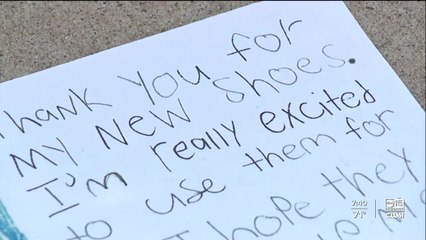 Thank You for
My New Shoes.
I'm really excited
to use them for
I hope they
7:40
71°